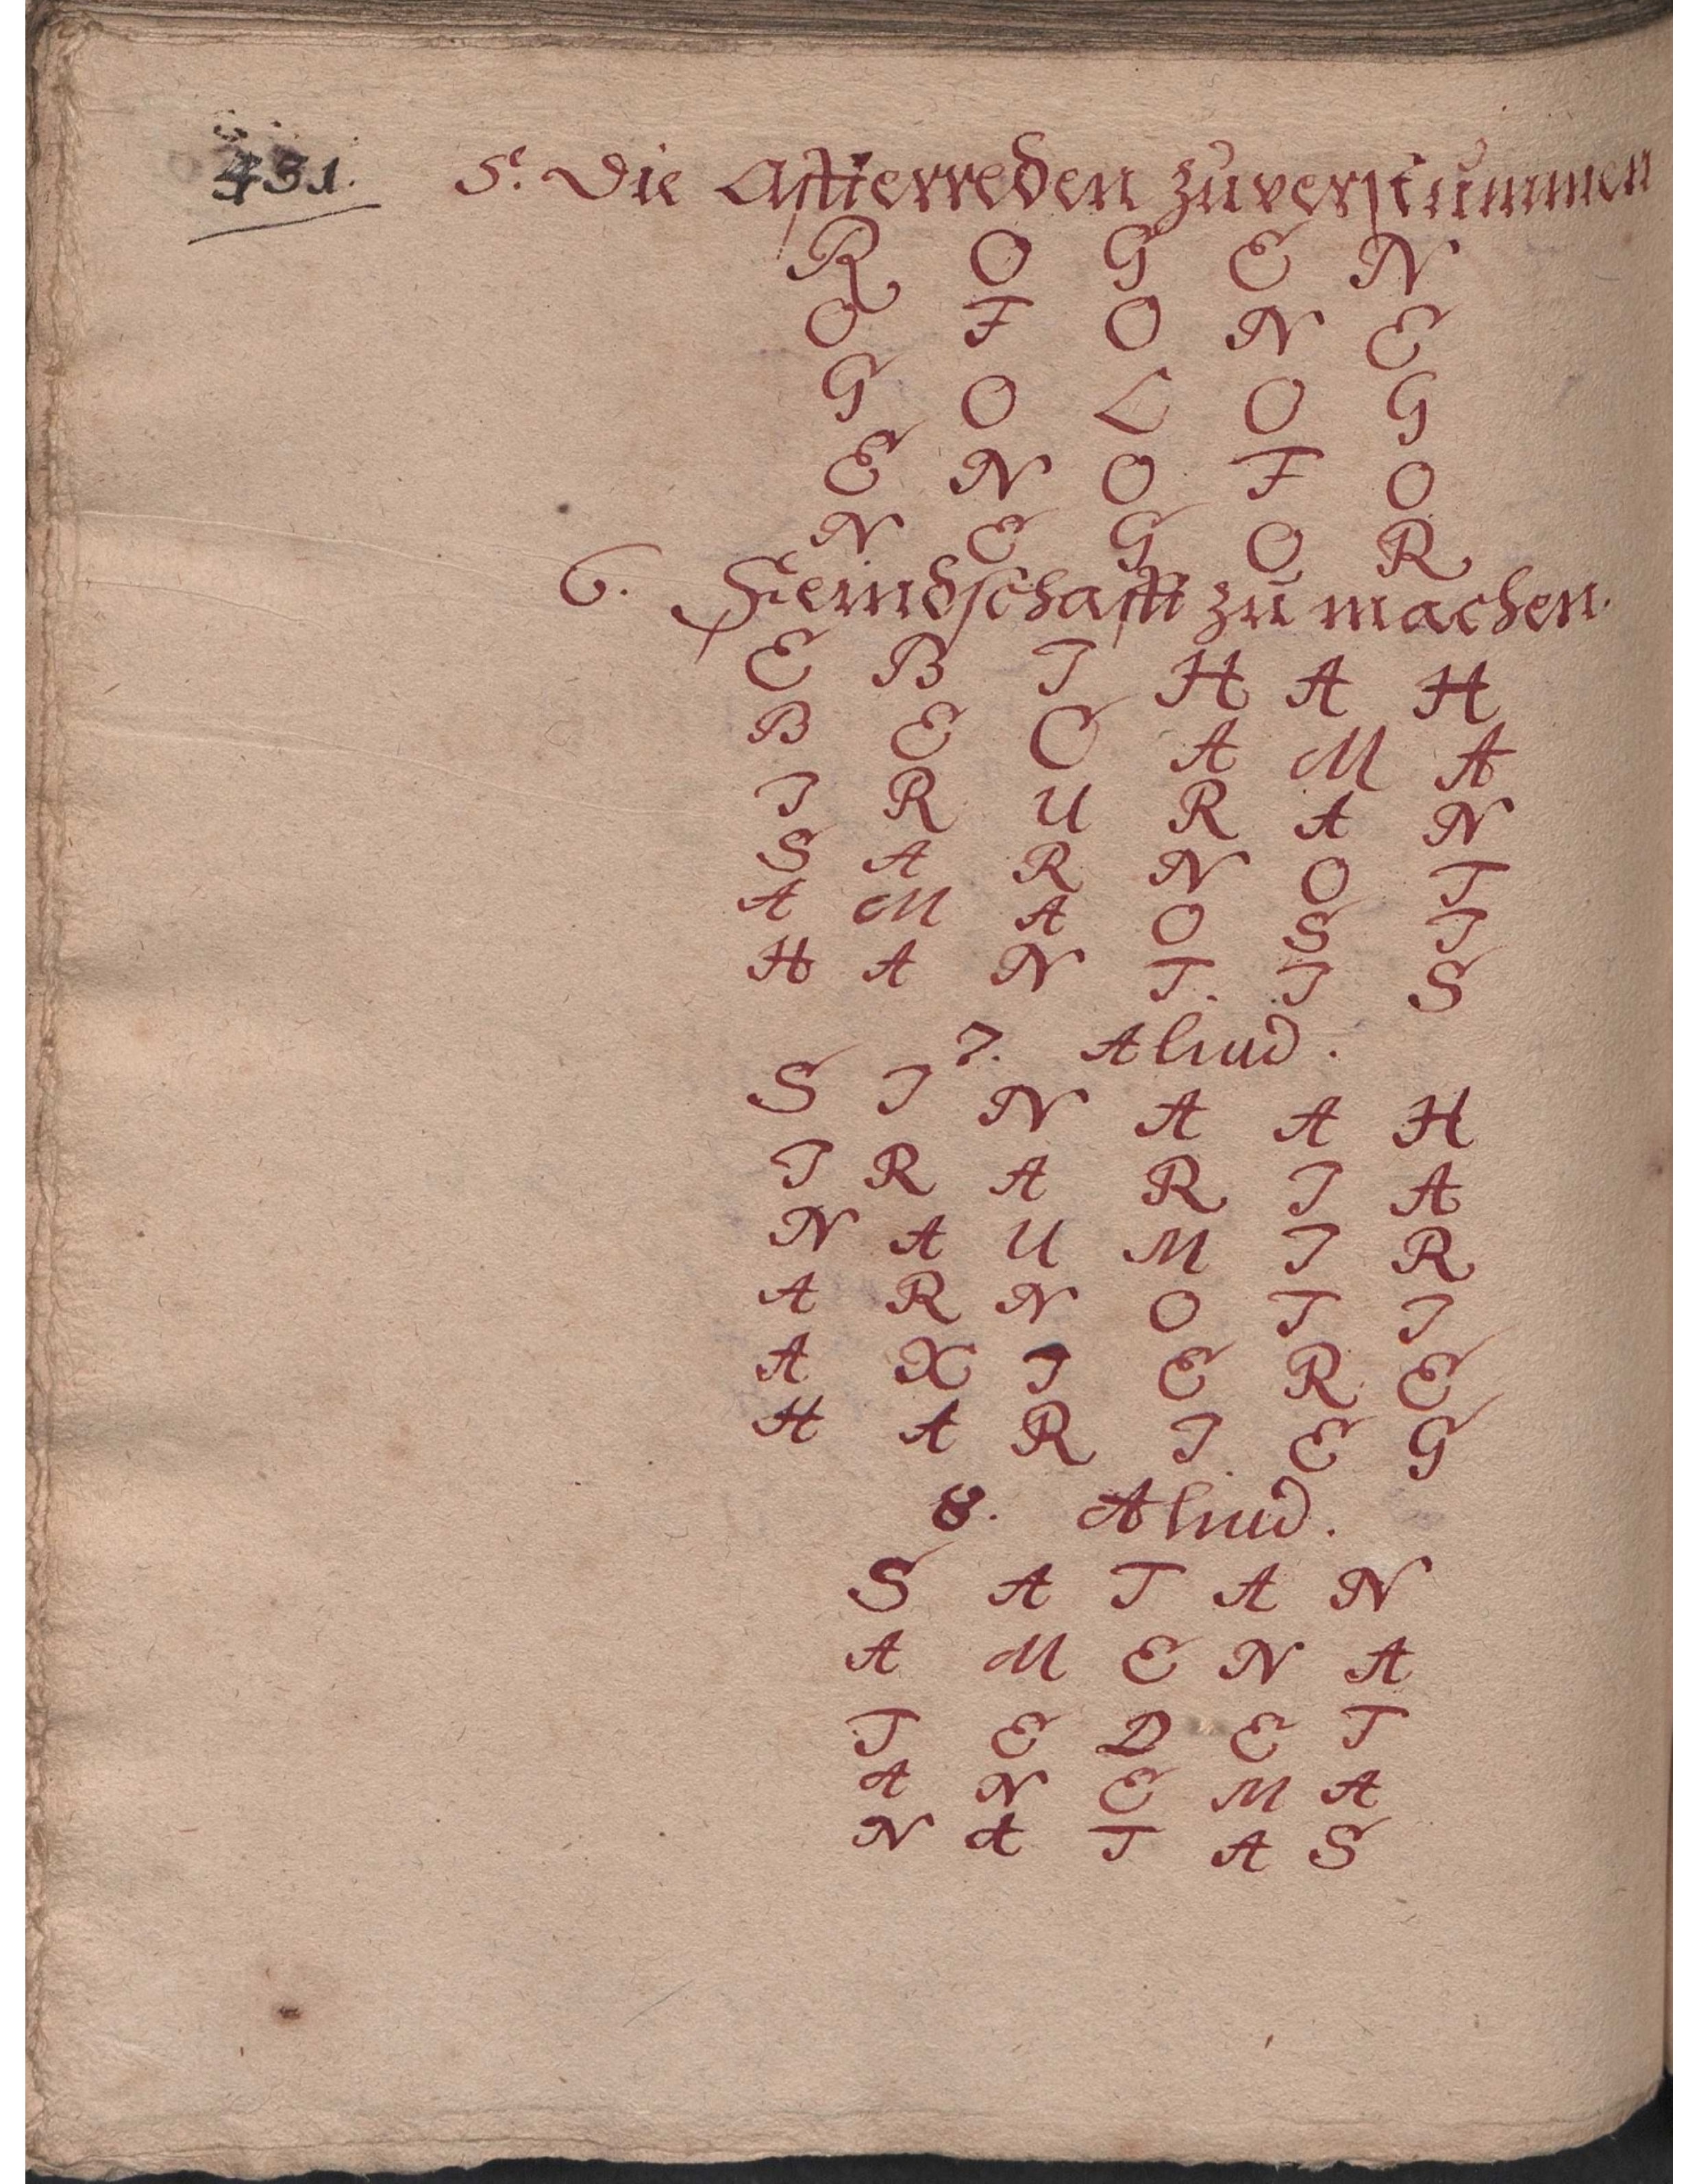 431. 5. Die Affterreden zuverstummen
R O G E N
O F O N E
G O L O G
E N O F O
N E G O R
6. Feindschafft zu machen.
E B I H A H
B E C A M A
I R U R A N
S A R N O T
A M A O S I
H A N T. I S
7. Aliud.
S I N A A H
I R A R I A
N A U M I R
A R N O T I
A X I E R E
H A R I E G
8. Aliud.
S A T A N
A M E N A
T E D E T
A N E M A
N A T A S